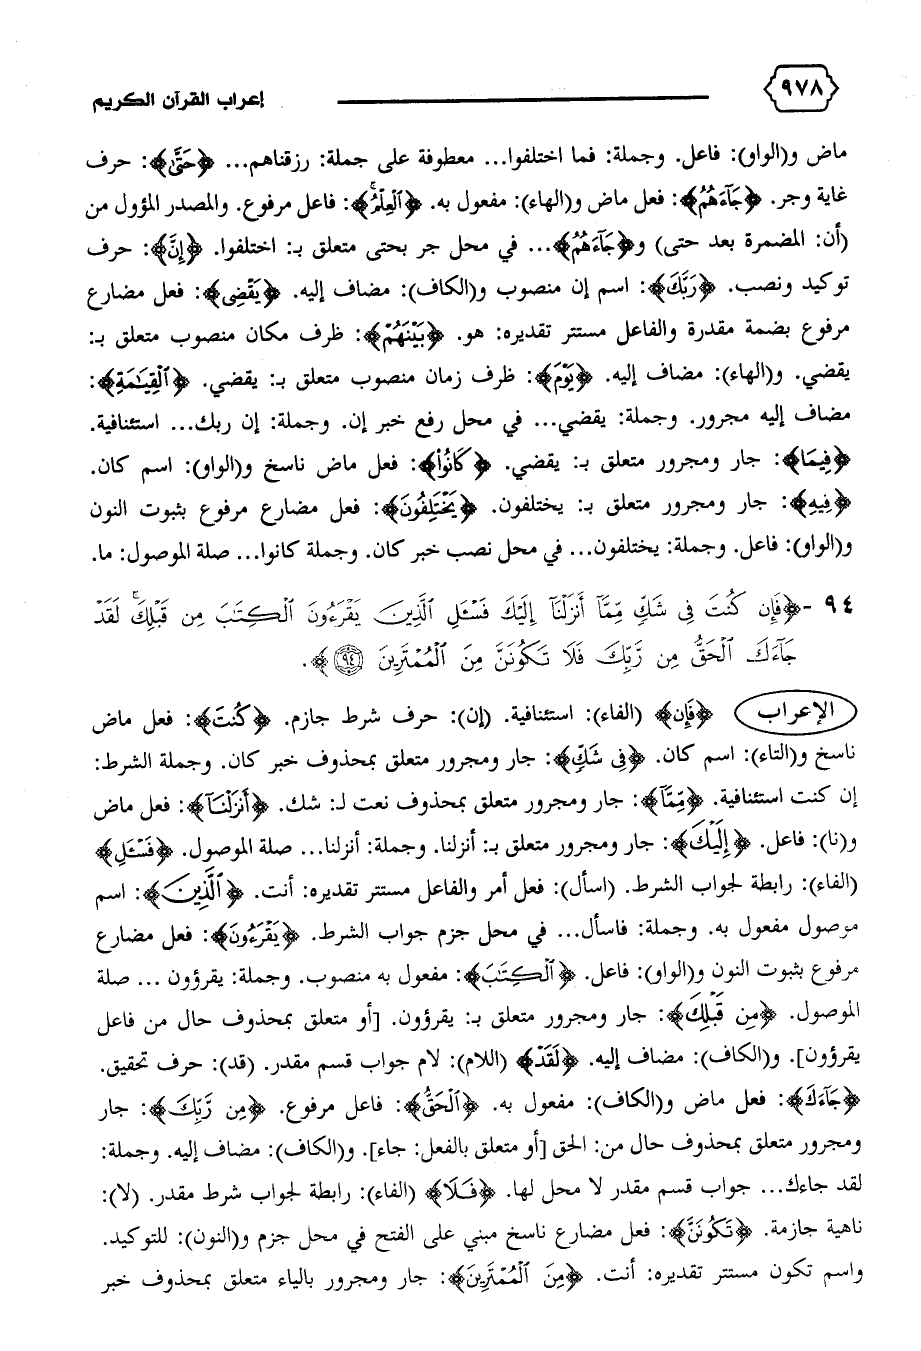 ٩٧٨ إعراب القرآن الكريم
ماض و(الواو): فاعل. وجملة: فما اختلفوا... معطوفة على جملة: رزقناهم... ﴿حَتَّىٰ﴾: حرف
غاية وجر. ﴿جَآءَهُمُ﴾: فعل ماض و(الهاء): مفعول به. ﴿ٱلْعِلْمُۚ﴾: فاعل مرفوع. والمصدر المؤول من
(أن: المضمرة بعد حتى) و﴿جَآءَهُمُ﴾... في محل جر بحتى متعلق بـ: اختلفوا. ﴿إِنَّ﴾: حرف
توكيد ونصب. ﴿رَبَّكَ﴾: اسم إن منصوب و(الكاف): مضاف إليه. ﴿يَقْضِى﴾: فعل مضارع
مرفوع بضمة مقدرة والفاعل مستتر تقديره: هو. ﴿بَيْنَهُمْ﴾: ظرف مكان منصوب متعلق بـ:
يقضي. و(الهاء): مضاف إليه. ﴿يَوْمَ﴾: ظرف زمان منصوب متعلق بـ: يقضي. ﴿ٱلْقِيَٰمَةِ﴾:
مضاف إليه مجرور. وجملة: يقضي... في محل رفع خبر إن. وجملة: إن ربك... استئنافية.
﴿فِيمَا﴾: جار ومجرور متعلق بـ: يقضي. ﴿كَانُوا۟﴾: فعل ماض ناسخ و(الواو): اسم كان.
﴿فِيهِ﴾: جار ومجرور متعلق بـ: يختلفون. ﴿يَخْتَلِفُونَ﴾: فعل مضارع مرفوع بثبوت النون
و(الواو): فاعل. وجملة: يختلفون... في محل نصب خبر كان. وجملة كانوا... صلة الموصول: ما.
٩٤ -﴿فَإِن كُنتَ فِى شَكٍّ مِّمَّآ أَنزَلْنَآ إِلَيْكَ فَسْـَٔلِ ٱلَّذِينَ يَقْرَءُونَ ٱلْكِتَٰبَ مِن قَبْلِكَۚ لَقَدْ
جَآءَكَ ٱلْحَقُّ مِن رَّبِّكَ فَلَا تَكُونَنَّ مِنَ ٱلْمُمْتَرِينَ ٩٤﴾.
الإعراب ﴿فَإِن﴾ (الفاء): استئنافية. (إن): حرف شرط جازم. ﴿كُنتَ﴾: فعل ماض
ناسخ و(التاء): اسم كان. ﴿فِى شَكٍّ﴾: جار ومجرور متعلق بمحذوف خبر كان. وجملة الشرط:
إن كنت استئنافية. ﴿مِّمَّآ﴾: جار ومجرور متعلق بمحذوف نعت لـ: شك. ﴿أَنزَلْنَآ﴾: فعل ماض
و(نا): فاعل. ﴿إِلَيْكَ﴾: جار ومجرور متعلق بـ: أنزلنا. وجملة: أنزلنا... صلة الموصول. ﴿فَسْـَٔلِ﴾
(الفاء): رابطة لجواب الشرط. (اسأل): فعل أمر والفاعل مستتر تقديره: أنت. ﴿ٱلَّذِينَ﴾: اسم
موصول مفعول به. وجملة: فاسأل... في محل جزم جواب الشرط. ﴿يَقْرَءُونَ﴾: فعل مضارع
مرفوع بثبوت النون و(الواو): فاعل. ﴿ٱلْكِتَٰبَ﴾: مفعول به منصوب. وجملة: يقرؤون ... صلة
الموصول. ﴿مِن قَبْلِكَ﴾: جار ومجرور متعلق بـ: يقرؤون. [أو متعلق بمحذوف حال من فاعل
يقرؤون]. و(الكاف): مضاف إليه. ﴿لَقَدْ﴾ (اللام): لام جواب قسم مقدر. (قد): حرف تحقيق.
﴿جَآءَكَ﴾: فعل ماض و(الكاف): مفعول به. ﴿ٱلْحَقُّ﴾: فاعل مرفوع. ﴿مِن رَّبِّكَ﴾: جار
ومجرور متعلق بمحذوف حال من: الحق [أو متعلق بالفعل: جاء]. و(الكاف): مضاف إليه. وجملة:
لقد جاءك... جواب قسم مقدر لا محل لها. ﴿فَلَا﴾ (الفاء): رابطة لجواب شرط مقدر. (لا):
ناهية جازمة. ﴿تَكُونَنَّ﴾: فعل مضارع ناسخ مبني على الفتح في محل جزم و(النون): للتوكيد.
واسم تكون مستتر تقديره: أنت. ﴿مِنَ ٱلْمُمْتَرِينَ﴾: جار ومجرور بالياء متعلق بمحذوف خبر